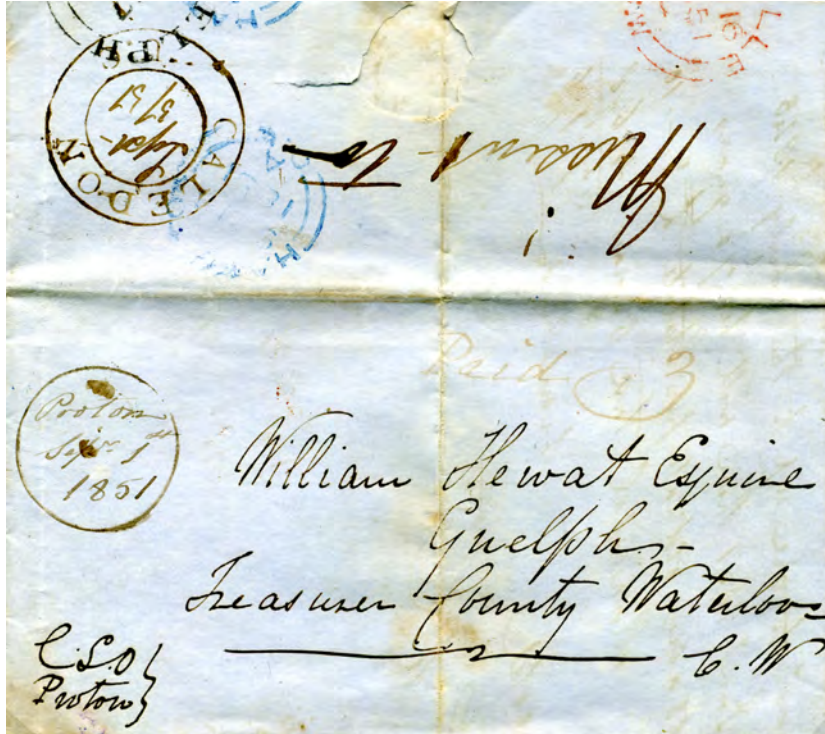 CALEDON
Sept
3/51
Missent to
Paid 3
Proton
Sepr. 1st
1851
William Hewat Esquire
Guelph -
Treasurer County Waterloo
C. W
C.L.O
Proton